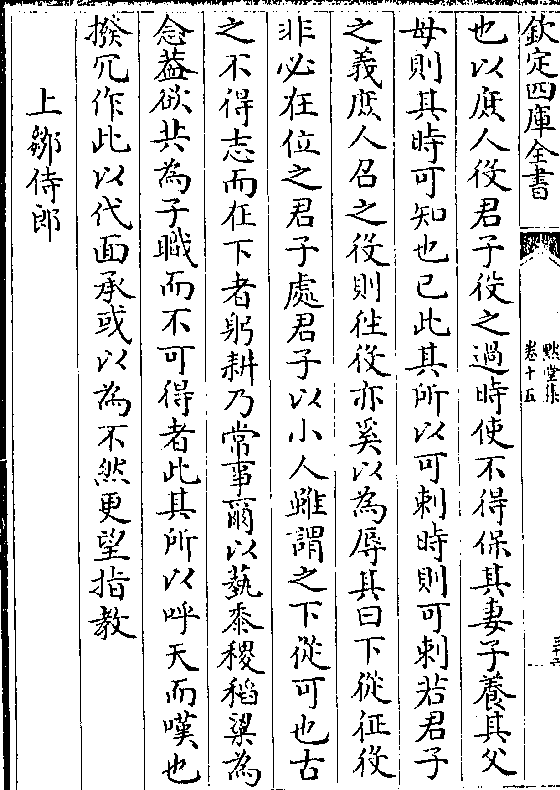 欽定四庫全書
默堂集
卷十五
也以庶人役君子役之過時使不得保其妻子養其父
母則其時可知也已此其所以可刺時則可刺若君子
之義庶人召之役則徃役亦奚以為辱其曰下從征役
非必在位之君子處君子以小人雖謂之下從可也古
之不得志而在下者躬耕乃常事爾以蓺黍稷稻粱為
念葢欲共為子職而不可得者此其所以呼天而嘆也
撥冗作此以代面承或以為不然更望指教
上鄒侍郎